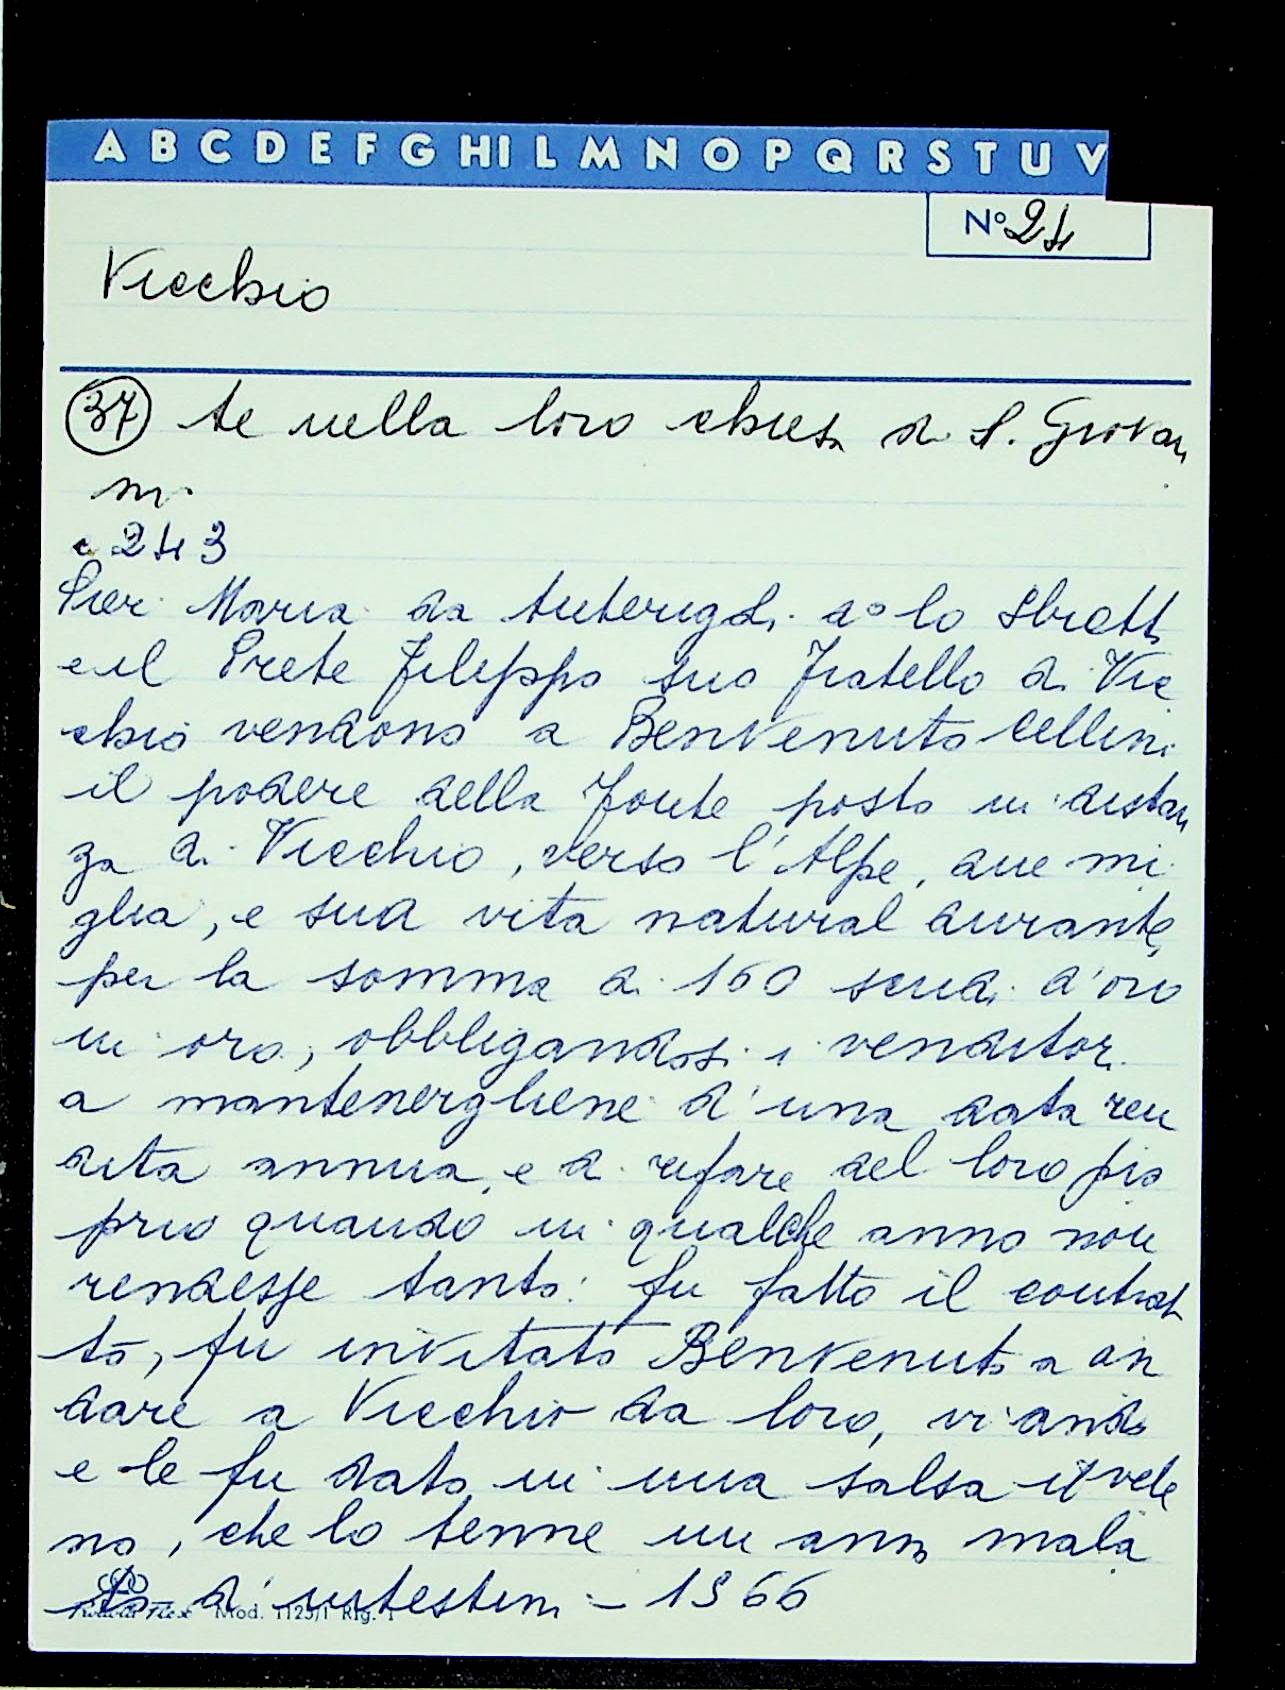 A B C D E F G HI L M N O P Q R S T U V
N° 24
Vicchio
37 te nella loro chiesa di S. Giovan
ni.
c 243
Pier Maria da Anterigoli do lo Sbiett
e il Prete Filippo suo Fratello di Vic
chio vendono a Benvenuto Cellini
il podere della Fonte posto in distan
za di Vicchio, verso l'Alpe, due mi
glia, e sua vita natural durante,
per la somma di 160 scudi d'oro
in oro, obbligandosi i venditori
a mantenergliene d'una data ren
dita annua, e di rifare del loro pro
prio quando in qualche anno non
rendesse tanto: fu fatto il contrat
to, fu invitato Benvenuto a an
dare a Vicchio da loro, vi andò
e le fu dato in una salsa il vele
no, che lo tenne un anno mala
to d'intestini - 1566
Mod. 1125/1 Rig. 1